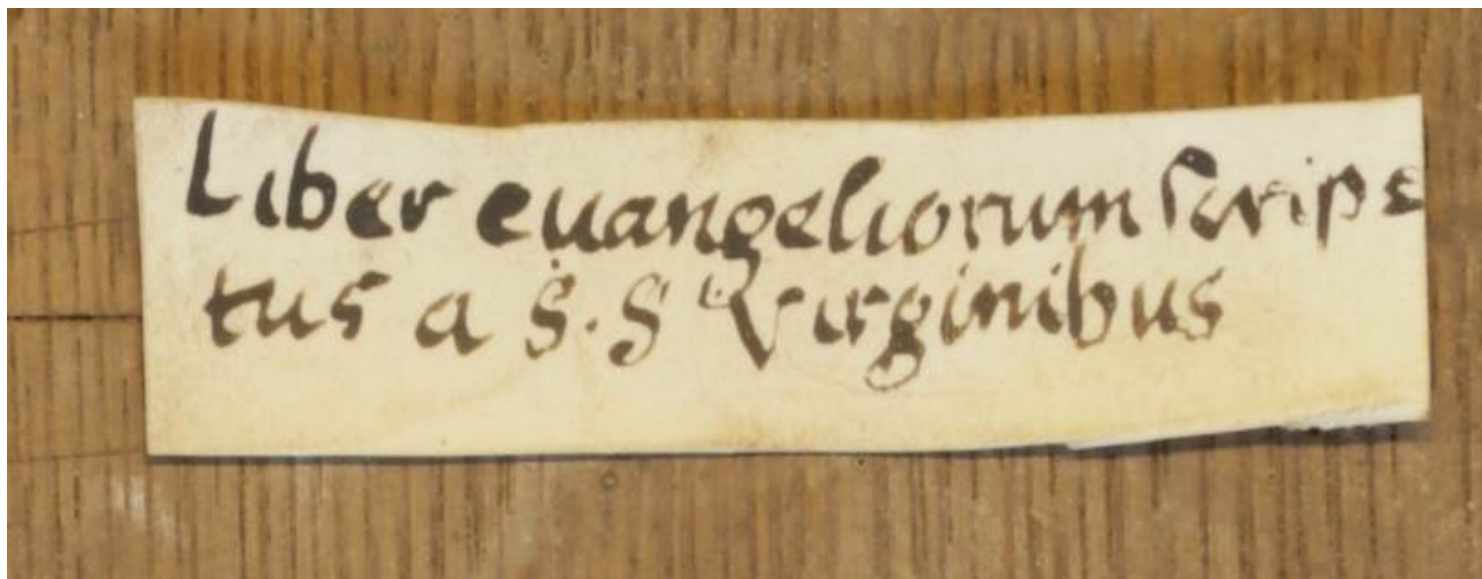 Liber euangeliorum scrips
tus a S. S Virginibus